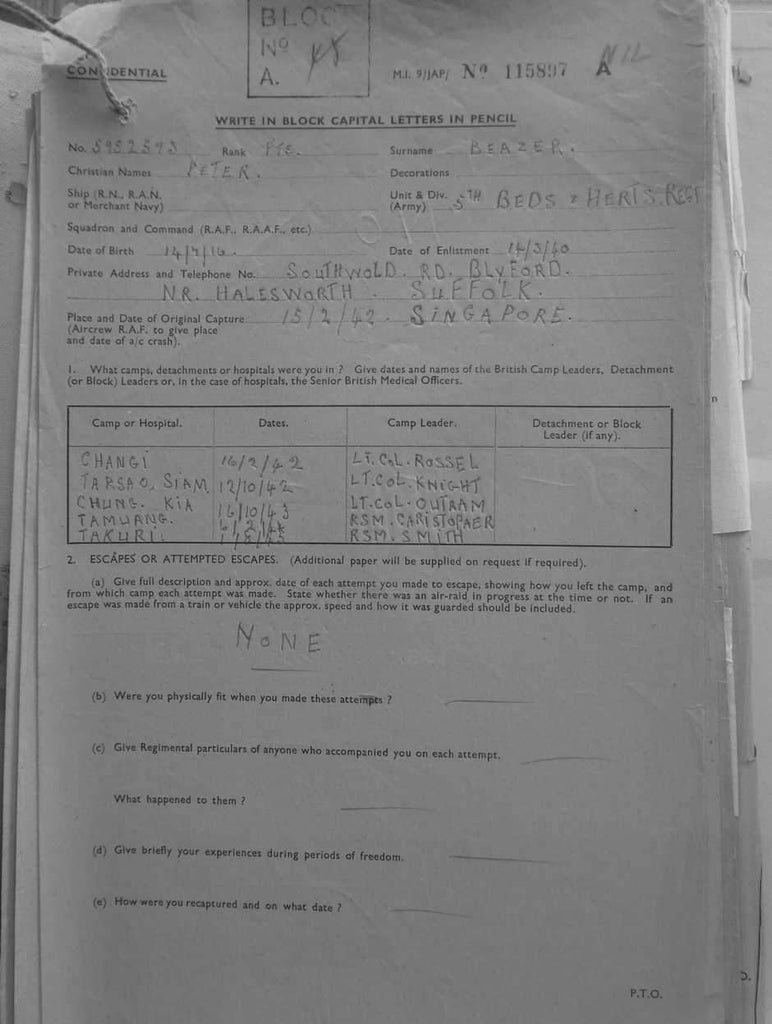 BLOCK
Nº
A.
CONFIDENTIAL
M.I. 9/JAP/ Nº 115897 A NIL
WRITE IN BLOCK CAPITAL LETTERS IN PENCIL
No. 5952593 Rank PTE. Surname BEAZER.
Christian Names PETER. Decorations
Ship (R.N., R.A.N. or Merchant Navy) Unit & Div. (Army) 5TH BEDS & HERTS. REGT
Squadron and Command (R.A.F., R.A.A.F., etc.)
Date of Birth 14/7/16. Date of Enlistment 14/3/40
Private Address and Telephone No. SOUTHWOLD. RD. BLYFORD.
NR. HALESWORTH. SUFFOLK.
Place and Date of Original Capture 15/2/42. SINGAPORE.
(Aircrew R.A.F. to give place
and date of a/c crash).
1. What camps, detachments or hospitals were you in ? Give dates and names of the British Camp Leaders, Detachment
(or Block) Leaders or, in the case of hospitals, the Senior British Medical Officers.
Camp or Hospital. Dates. Camp Leader. Detachment or Block Leader (if any).
CHANGI 16/2/42 LT. COL. ROSSEL
TARSAO, SIAM 12/10/42 LT. COL. KNIGHT
CHUNG. KIA 16/10/43 LT. COL. OUTRAM
TAMUANG. RSM. CARISTOPAER
TAKURI. RSM. SMITH
2. ESCAPES OR ATTEMPTED ESCAPES. (Additional paper will be supplied on request if required).
(a) Give full description and approx. date of each attempt you made to escape, showing how you left the camp, and
from which camp each attempt was made. State whether there was an air-raid in progress at the time or not. If an
escape was made from a train or vehicle the approx. speed and how it was guarded should be included.
NONE
(b) Were you physically fit when you made these attempts ?
(c) Give Regimental particulars of anyone who accompanied you on each attempt.
What happened to them ?
(d) Give briefly your experiences during periods of freedom.
(e) How were you recaptured and on what date ?
P.T.O.